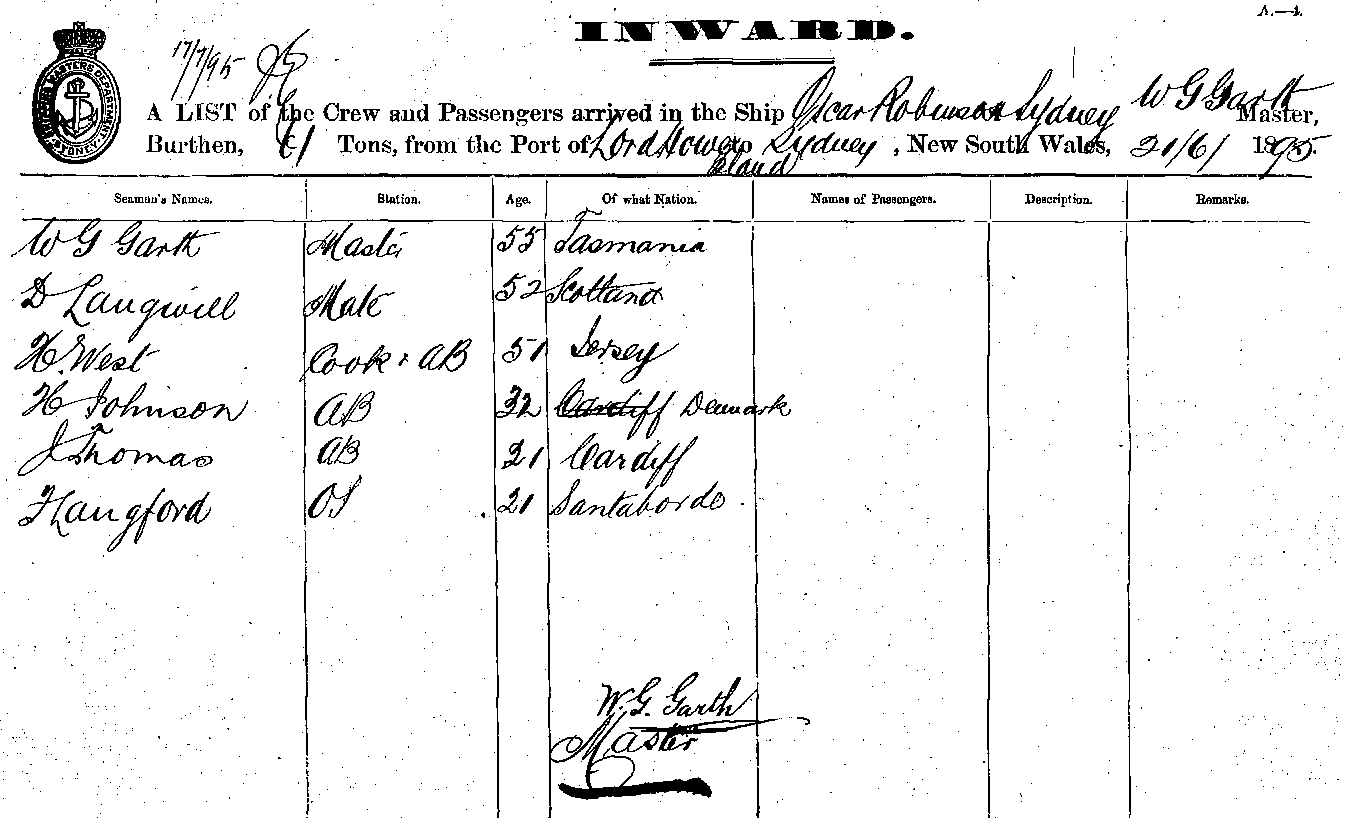 A.—4.
INWARD.
SHIPPING MASTERS DEPARTMENT SYDNEY.
17/7/95
A LIST of the Crew and Passengers arrived in the Ship Oscar Robinson Sydney W G Garth Master,
Burthen, 61 Tons, from the Port of Lord Howe Island to Sydney, New South Wales, 21/6/ 1895.
Seaman's Names. Station. Age. Of what Nation. Names of Passengers. Description. Remarks.
W G Garth Master 55 Tasmania
D Langwill Mate 52 Scotland
H. West Cook & AB 51 Jersey
H Johnson AB 32 Cardiff Denmark
J Thomas AB 21 Cardiff
F Langford OS 21 Santabordo
W. G. Garth
Master